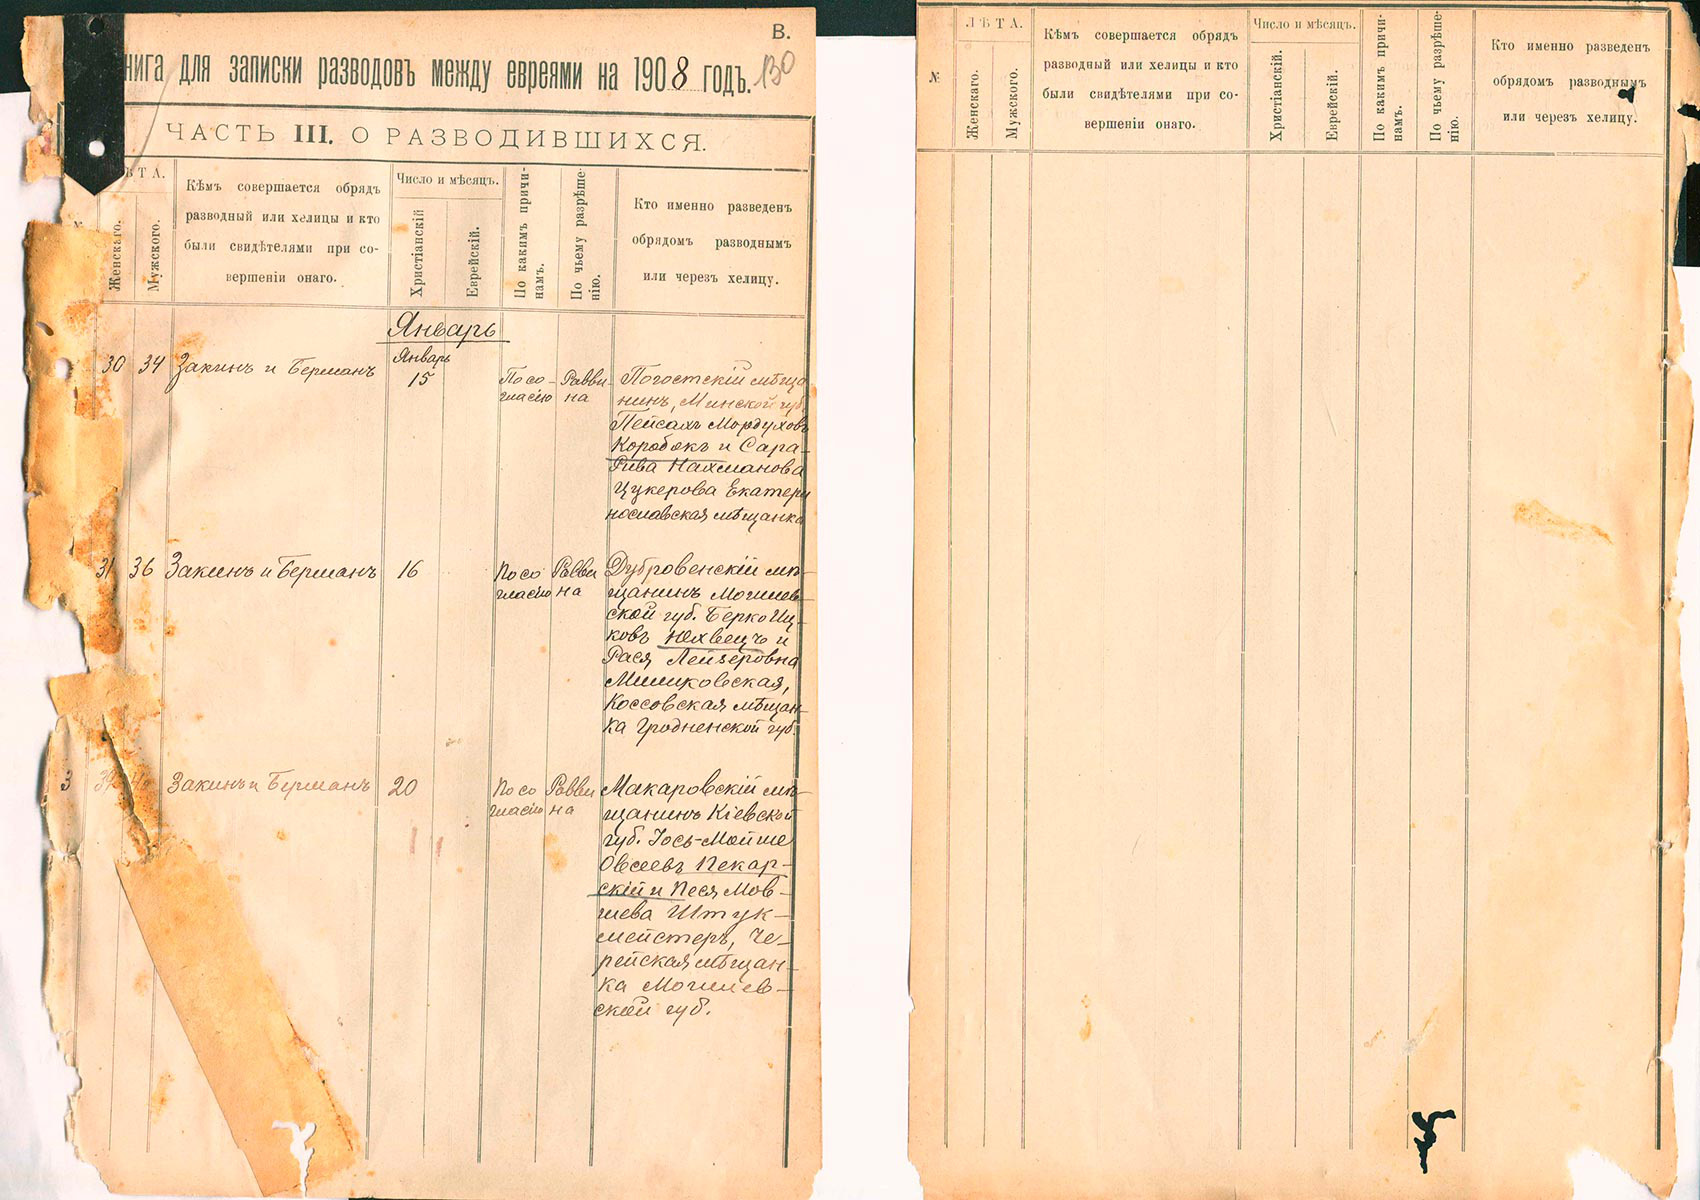 В.
нига для записки разводовъ между евреями на 1908 годъ.
130
ЧАСТЬ III. О РАЗВОДИВШИХСЯ.
ѢТА.
Женскаго.
Мужского.
Кѣмъ совершается обрядъ
разводный или хелицы и кто
были свидѣтелями при со-
вершеніи онаго.
Число и мѣсяцъ.
Христіанскій
Еврейскій.
По какимъ причи-
намъ.
По чьему разрѣше-
нію.
Кто именно разведенъ
обрядомъ разводнымъ
или черезъ хелицу.
Январь
30 34 Закинъ и Берманъ
Январь
15
По со-
гласію
Равви-
на
Погостскій мѣща
нинъ, Минской губ.
Пейсахъ Мордуховъ
Коробокъ и Сара-
Рива Нахманова
Цукерова Екатери
нославская мѣщанка
31 36 Закинъ и Берманъ 16
По со
гласію
Равви
на
Дубровенскій мѣ-
щанинъ Могилев-
ской губ. Берко Иц-
ковъ Юхвецъ и
Рася Лейзеровна
Миликовская,
Коссовская мѣщан-
ка Гродненской губ.
3
Закинъ и Берманъ 20
По со
гласію
Равви
на
Макаровскій мѣ-
щанинъ Кіевской
губ. Іось-Мойше
Овсеевъ Пекар-
скій и Песя Мов-
шева Штук-
мейстеръ, Че-
рейская мѣщан-
ка Могилев-
ской губ.
№
ЛѢТА.
Женскаго.
Мужского.
Кѣмъ совершается обрядъ
разводный или хелицы и кто
были свидѣтелями при со-
вершеніи онаго.
Число и мѣсяцъ.
Христіанскій.
Еврейскій.
По какимъ причи-
намъ.
По чьему разрѣше-
нію.
Кто именно разведенъ
обрядомъ разводнымъ
или черезъ хелицу.